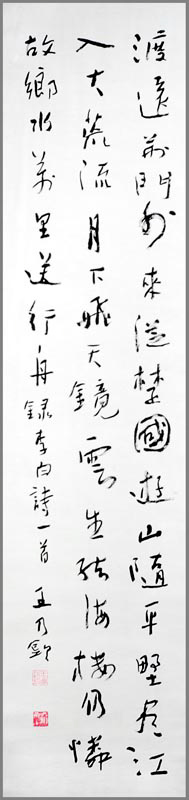 渡遠荊門外來從楚國遊山隨平野盡江
入大荒流月下飛天鏡雲生結海樓仍憐
故鄉水萬里送行舟錄李白詩一首 王乃